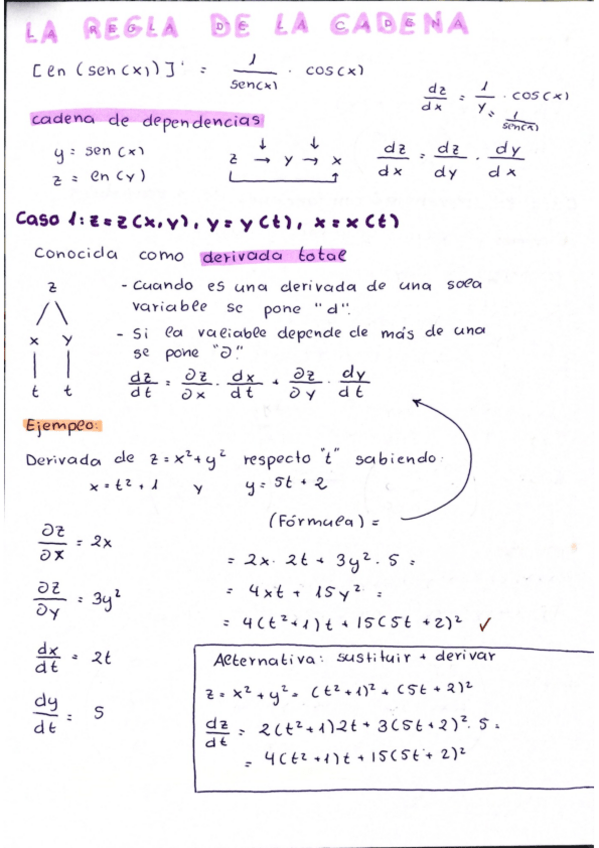 LA REGLA DE LA CADENA
[en (sen(x))]' = 1/sen(x) · cos(x)
dz/dx = 1/y · cos(x)
y = 1/sen(x)
cadena de dependencias
y = sen(x)
z = en(y)
z → y → x
dz/dx = dz/dy · dy/dx
Caso 1: z = z(x,y), y = y(t), x = x(t)
Conocida como derivada total
z
x y
t t
- Cuando es una derivada de una sola
variable se pone "d".
- Si la valiable depende de más de una
se pone "∂"
dz/dt = ∂z/∂x · dx/dt + ∂z/∂y · dy/dt
Ejemplo:
Derivada de z = x² + y² respecto "t" sabiendo:
x = t² + 1 y y = 5t + 2
(Fórmula) =
∂z/∂x = 2x
= 2x · 2t + 3y² · 5 =
∂z/∂y = 3y²
= 4xt + 15y² =
= 4(t² + 1)t + 15(5t + 2)² ✓
dx/dt = 2t
dy/dt = 5
Alternativa: sustituir + derivar
z = x² + y² = (t² + 1)² + (5t + 2)²
dz/dt = 2(t² + 1)2t + 3(5t + 2)² · 5 =
= 4(t² + 1)t + 15(5t + 2)²